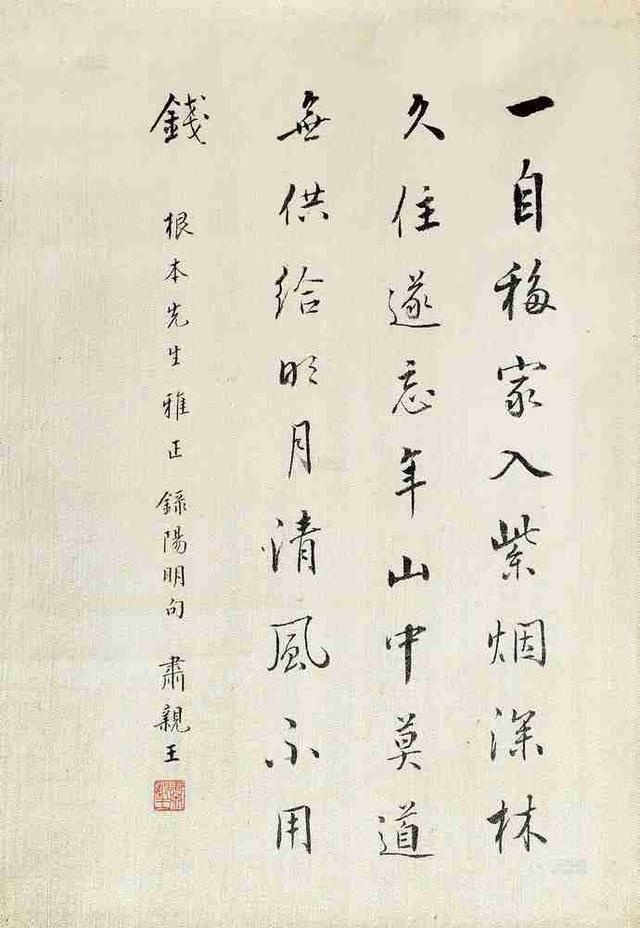 一自移家入紫烟深林
久住遂忘年山中莫道
無供給明月清風不用
錢
根本先生雅正 錄陽明句 肅親王